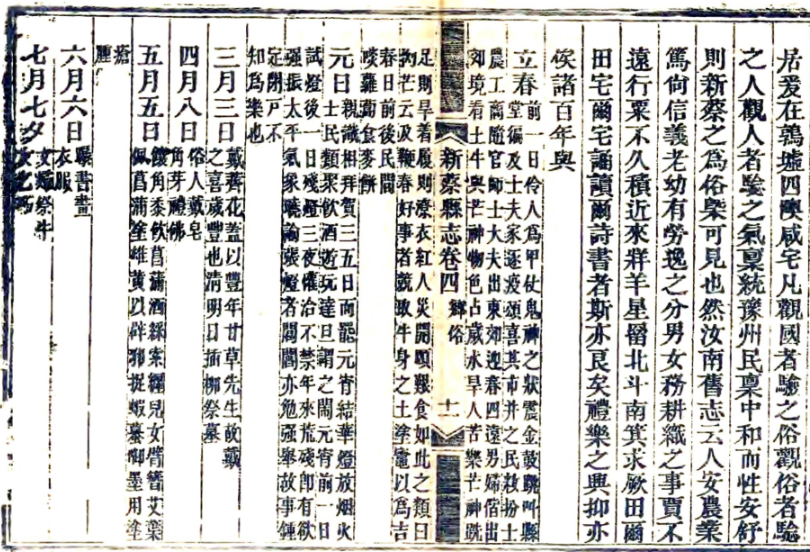 居爰在鶉墟四隩咸宅凡觀國者驗之俗觀俗者驗
之人觀人者驗之氣稟統豫州民稟中和而性安舒
則新蔡之爲俗槩可見也然汝南舊志云人安農業
篤尚信義老幼有勞逸之分男女務耕織之事賈不
遠行粟不久積近來牂羊星罶北斗南箕求厥田爾
田宅爾宅誦讀爾詩書者斯亦艮矣禮樂之興抑亦
俟諸百年與
立春前一日伶人爲甲仗鬼神之狀震金鼓跳叫縣
堂徧及士夫家誕疫頌喜其市井之民效扮士
農工商隨官師士大夫出東郊迎春四遠男婦偕出
郊境看土牛與芒神物色占歲水旱人苦樂芒神跣
新蔡縣志卷四 鄉俗 十一
足則旱着履則潦衣紅人災開頭艱食如此之類曰
拘芒云及鞭春好事者競取牛身之土塗竈以爲吉
春日前後民間
啖蘿蔔食麥餅
元日士民類聚飲酒遊玩達旦謂之鬧元宵前一日
親識相拜賀三五日而罷元宵結華燈放烟火
試燈後一日殘燈三夜僱治不禁年來荒殘卽有欲
强振太平氣象曉諭張燈者閭閻亦勉强舉故事鍾
定閉戸不
知爲樂也
三月三日戴薺花蓋以豐年甘草先生故戴
之喜歲豐也清明日插柳祭墓
四月八日俗人戴皂
角芽禮佛
五月五日饋角黍飲菖蒲酒綵索纒兒女臂簪艾葉
佩菖蒲塗雄黃以辟邪捉蝦蟇啣墨用塗
瘡
腫
六月六日曝書畫
衣服
七月七夕女郎祭牛
女乞巧